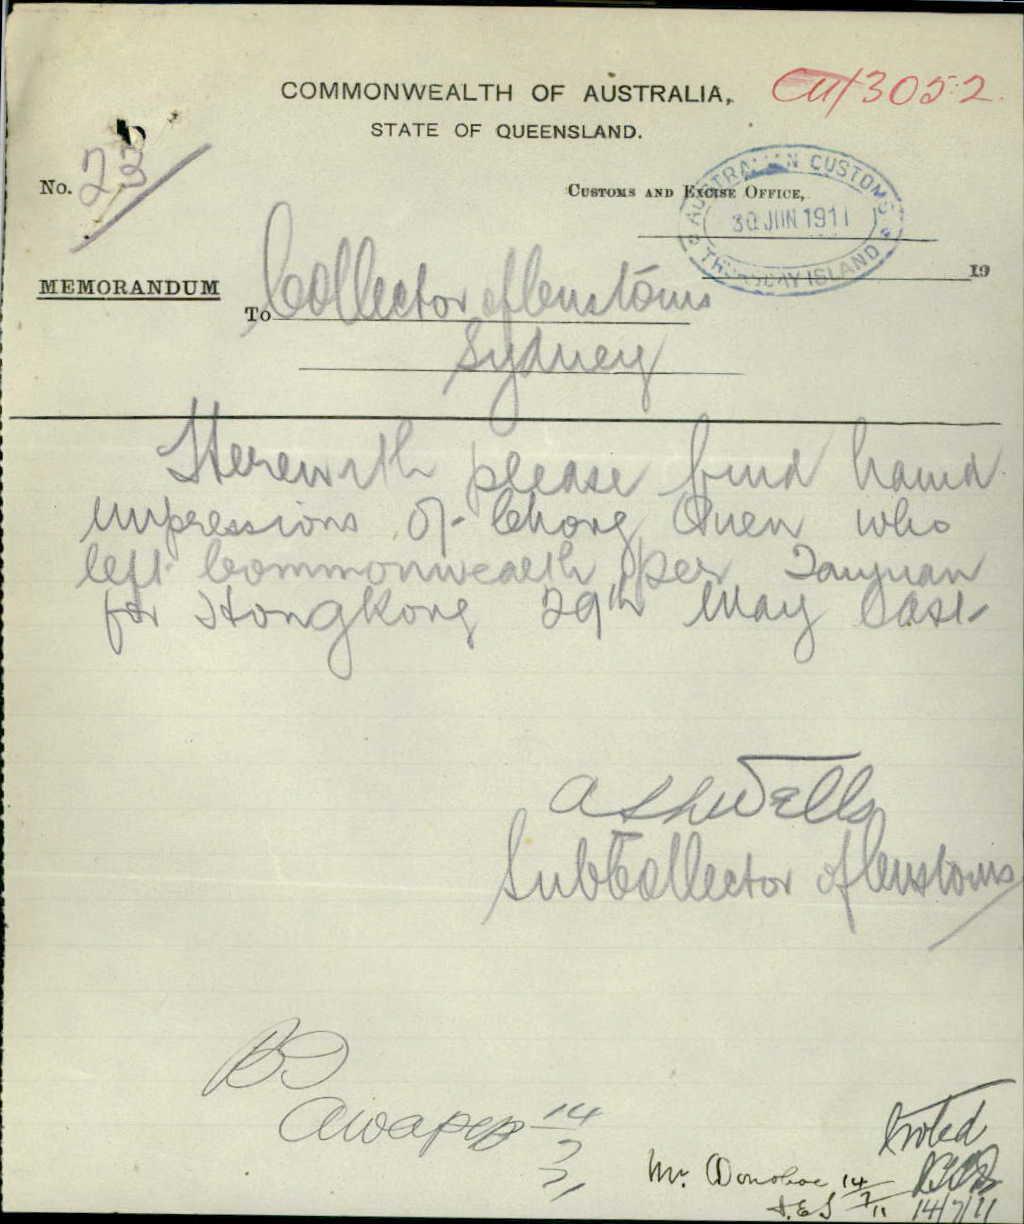 COMMONWEALTH OF AUSTRALIA,
STATE OF QUEENSLAND.
3052
No. 23
CUSTOMS AND EXCISE OFFICE,
AUSTRALIAN CUSTOMS
30 JUN 1911
THURSDAY ISLAND
19
MEMORANDUM
To Collector of Customs
Sydney
Herewith please find hand
impressions of Chong Quen who
left Commonwealth per Taiyuan
for Hongkong 29th May last
Sub Collector of Customs
14/7/11
Noted
Mr. Donohoe 14/7/11
14/7/11